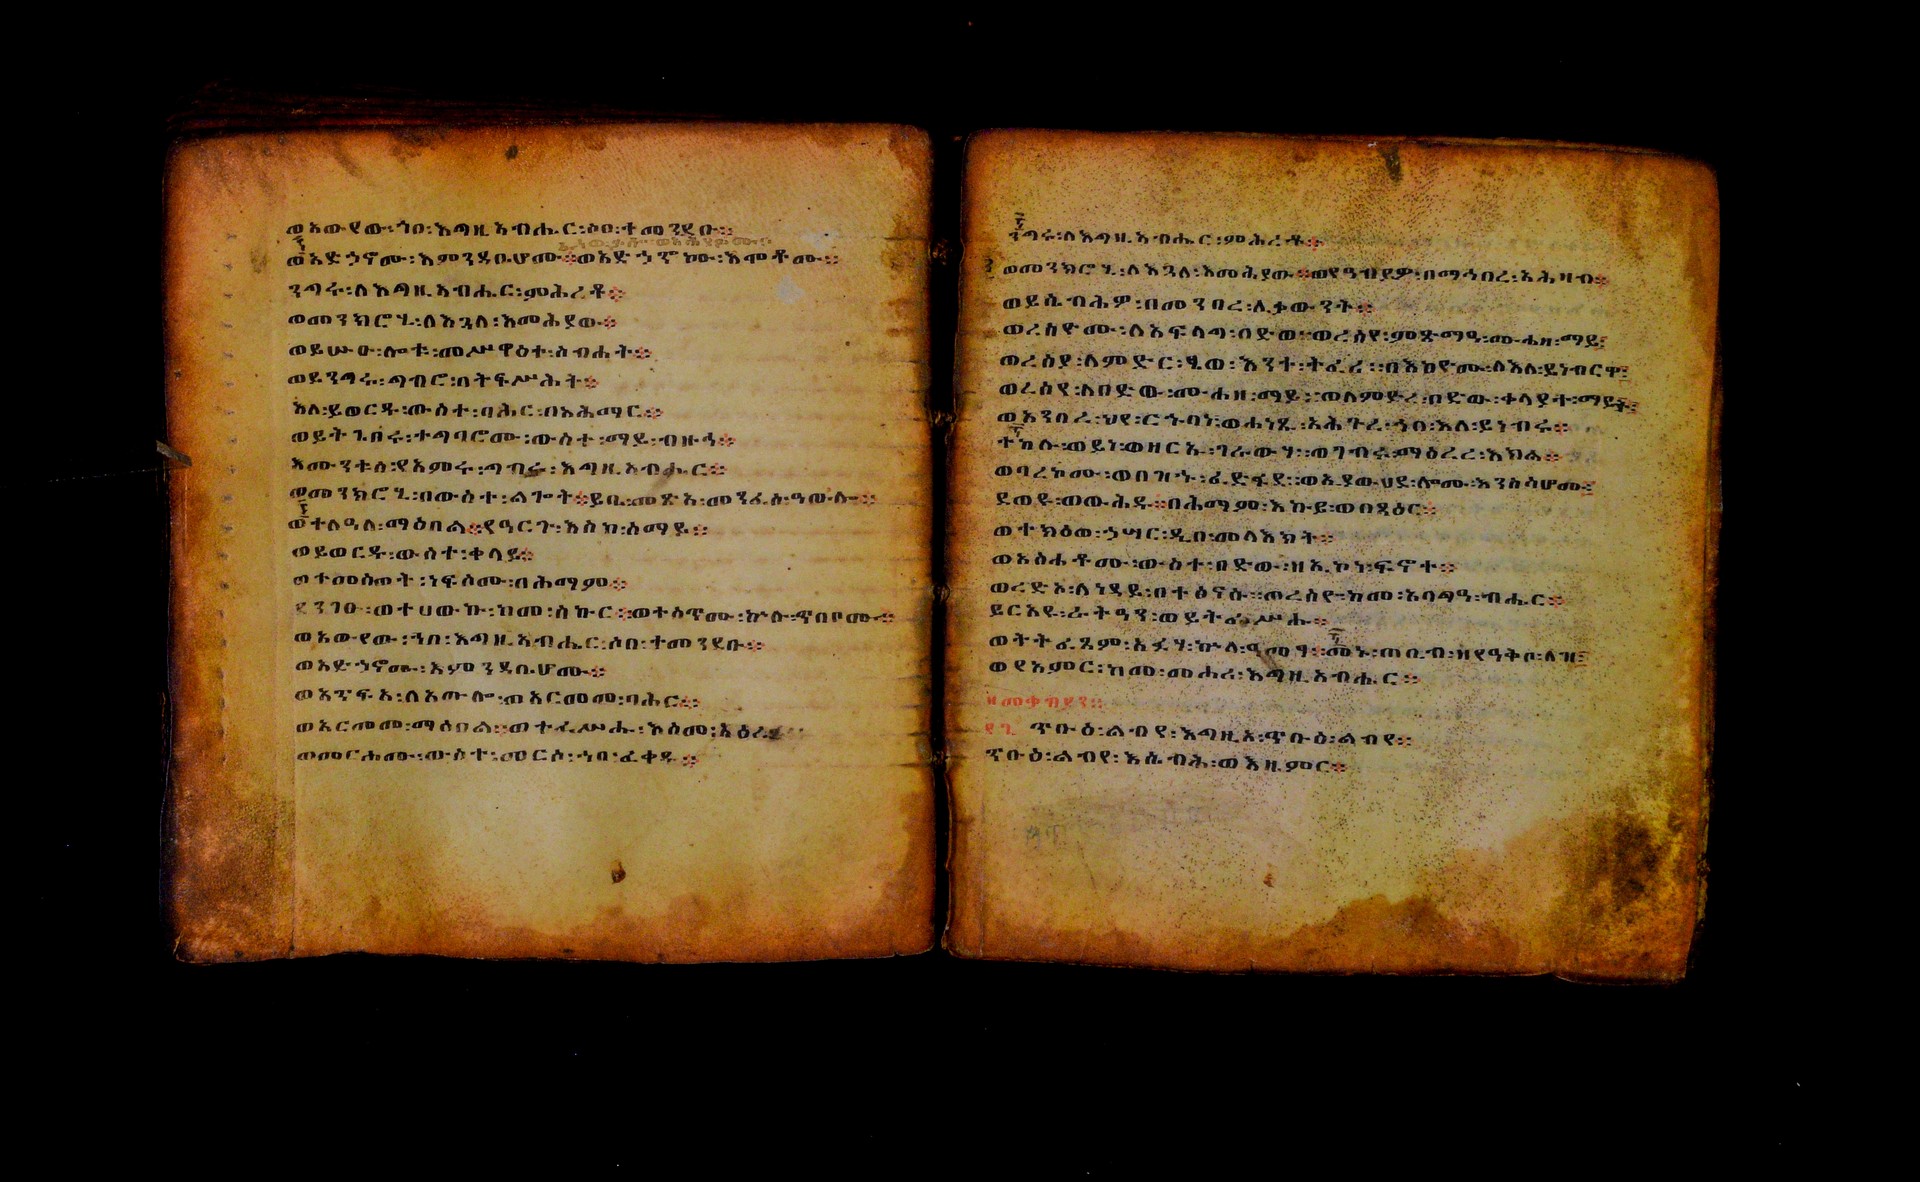 ወአውየው፡ኀበ፡እግዚአብሔር፡ሶበ፡ተመንደቡ።
ወአድኀኖሙ፡እምንዳቤሆሙ።ወአድኀኖሙ፡እሞቶሙ።
ንግሩ፡ለእግዚአብሔር፡ምሕረቶ።
ወመንክሮሂ፡ለእጓለ፡እመሕያው።
ወይሡዑ፡ሎቱ፡መሥዋዕተ፡ስብሐት።
ወይንግሩ፡ግብሮ፡በትፍሥሕት።
እለ፡ይወርዱ፡ውስተ፡ባሕር፡በአሕማር።
ወይትጌበሩ፡ተግባሮሙ፡ውስተ፡ማይ፡ብዙኅ።
እሙንቱሰ፡የአምሩ፡ግብረ፡እግዚአብሔር።
ወመንክሮሂ፡በውስተ፡ልጐት።ይቤ፡መጽአ፡መንፈሰ፡ዓውሎ።
ወተለዓለ፡ማዕበል።የዓርጉ፡እስከ፡ሰማይ።
ወይወርዱ፡ውስተ፡ቀላይ።
ወተመስወት፡ነፍሶሙ፡በሕማም።
ደንገፁ፡ወተሀውኩ፡ከመ፡ስኩር።ወተሰጥሙ፡ኵሉ፡ጥበቦሙ።
ወአውየው፡ኀበ፡እግዚአብሔር፡ሶበ፡ተመንደቡ።
ወአድኀኖሙ፡እምንዳቤሆሙ።
ወአንፍአ፡ለአውሎ፡ወአርመመ፡ባሕር።
ወአርመመ፡ማዕበል።ወተፈሥሑ፡እስመ፡አዕረፉ።
ወመርሖሙ፡ውስተ፡መርሶ፡ኀበ፡ፈቀዱ።
ንግሩ፡ለእግዚአብሔር፡ምሕረቶ።
ወመንክሮሂ፡ለእጓለ፡እመሕያው።ወየዓብይዎ፡በማኅበረ፡አሕዛብ።
ወይሴብሕዎ፡በመንበረ፡ሊቃውንት።
ወረሰዮሙ፡ለአፍላግ፡በድወ።ወረሰየ፡ምጽማዓ፡ሙሐዘ፡ማይ፤
ወረሰያ፡ለምድር፡ፄወ፡እንተ፡ትፈሪ፡በእከዮሙ፡ለእለ፡ይነብርዋ፤
ወረሰየ፡ለበድው፡ሙሐዘ፡ማይ፡ወለምድረ፡በድው፡ቀላያተ፡ማይ።
ወአንበረ፡ህየ፡ርኁባነ፡ወሐነጺ፡አሕጉረ፡ኀበ፡እለ፡ይነብሩ።
ተከሉ፡ወይነ፡ወዘርኡ፡ገራውሃ።ወገብሩ፡ማዕረረ፡እክል።
ወባረኮሙ፡ወበዝኁ፡ፈድፋደ።ወኢያውህደ፡ሎሙ፡እንስሳሆሙ፤
ደወዩ፡ወውሕዱ።በሕማም፡እኩይ፡ወበጻዕር።
ወተክዕወ፡ኃሣር፡ዲበ፡መላእክት።
ወአስሐቶሙ፡ውስተ፡በድው፡ዘኢኮነ፡ፍኖተ።
ወረድኦ፡ለነዳይ፡በተፅናሱ።ወረሰዮ፡ከመ፡አባግዓ፡ብሔር።
ይርአዩ፡ራትዓን፡ወይትፌሥሑ።
ወትትፈጸም፡አፉሃ፡ኵላ፡ዓመፃ።መኑ፡ጠቢብ፡ዘየዓቅቦ፡ለዝ፤
ወየአምር፡ከመ፡መሐሪ፡እግዚአብሔር።
ዘመቀብያን።
ጥቡዕ፡ልብየ፡እግዚኦ፡ጥቡዕ፡ልብየ።
ጥቡዕ፡ልብየ፡እሴብሕ፡ወእዜምር።